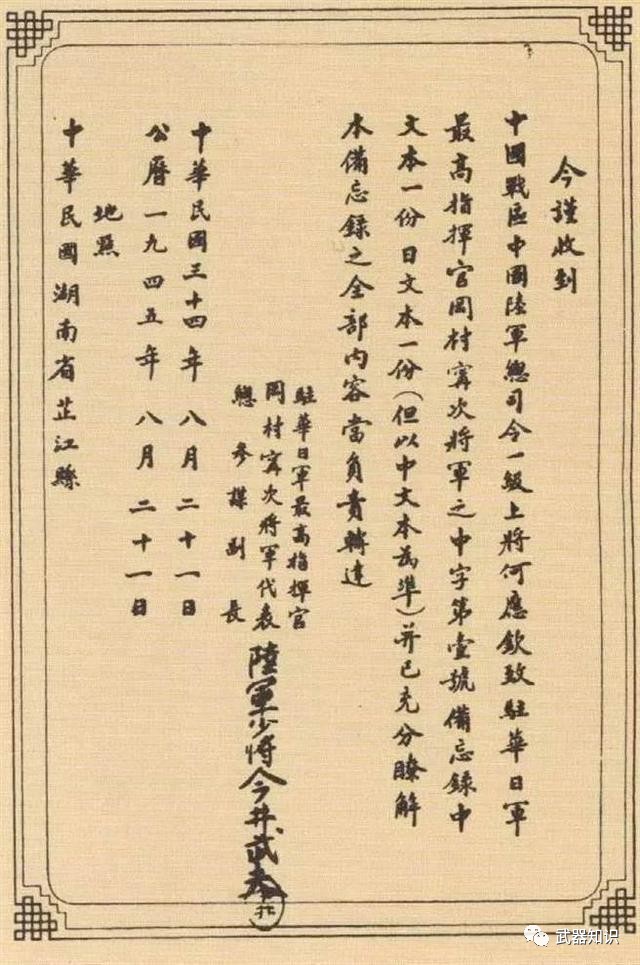 今謹收到
中國戰區中國陸軍總司令一級上將何應欽致駐華日軍
最高指揮官岡村寧次將軍之中字第壹號備忘錄中
文本一份日文本一份(但以中文本為準)并已充分瞭解
本備忘錄之全部內容當負責轉達
駐華日軍最高指揮官
岡村寧次將軍代表
總參謀副長
陸軍少將今井武夫
中華民國三十四年八月二十一日
公曆一九四五年八月二十一日
地點
中華民國湖南省芷江縣
武器知识